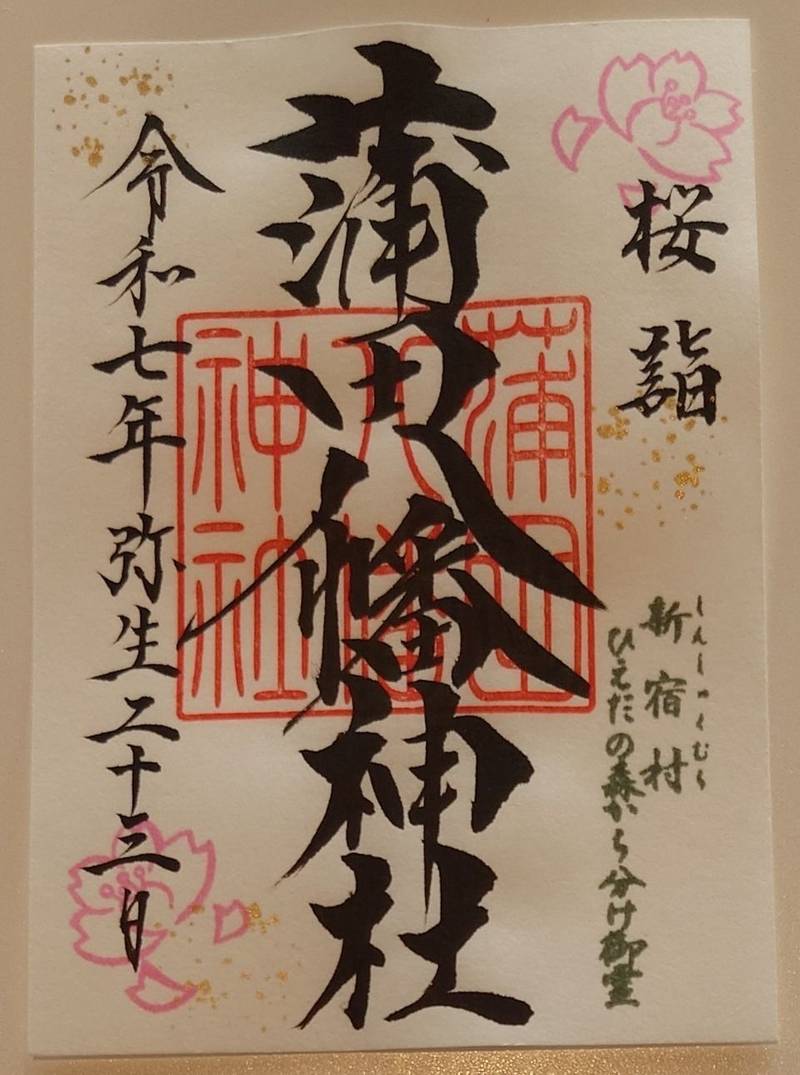 桜詣
しんしゅくむら
新宿村
ひえだの森から分け御霊
蒲田八幡神社
蒲田
八幡
神社
令和七年弥生二十三日